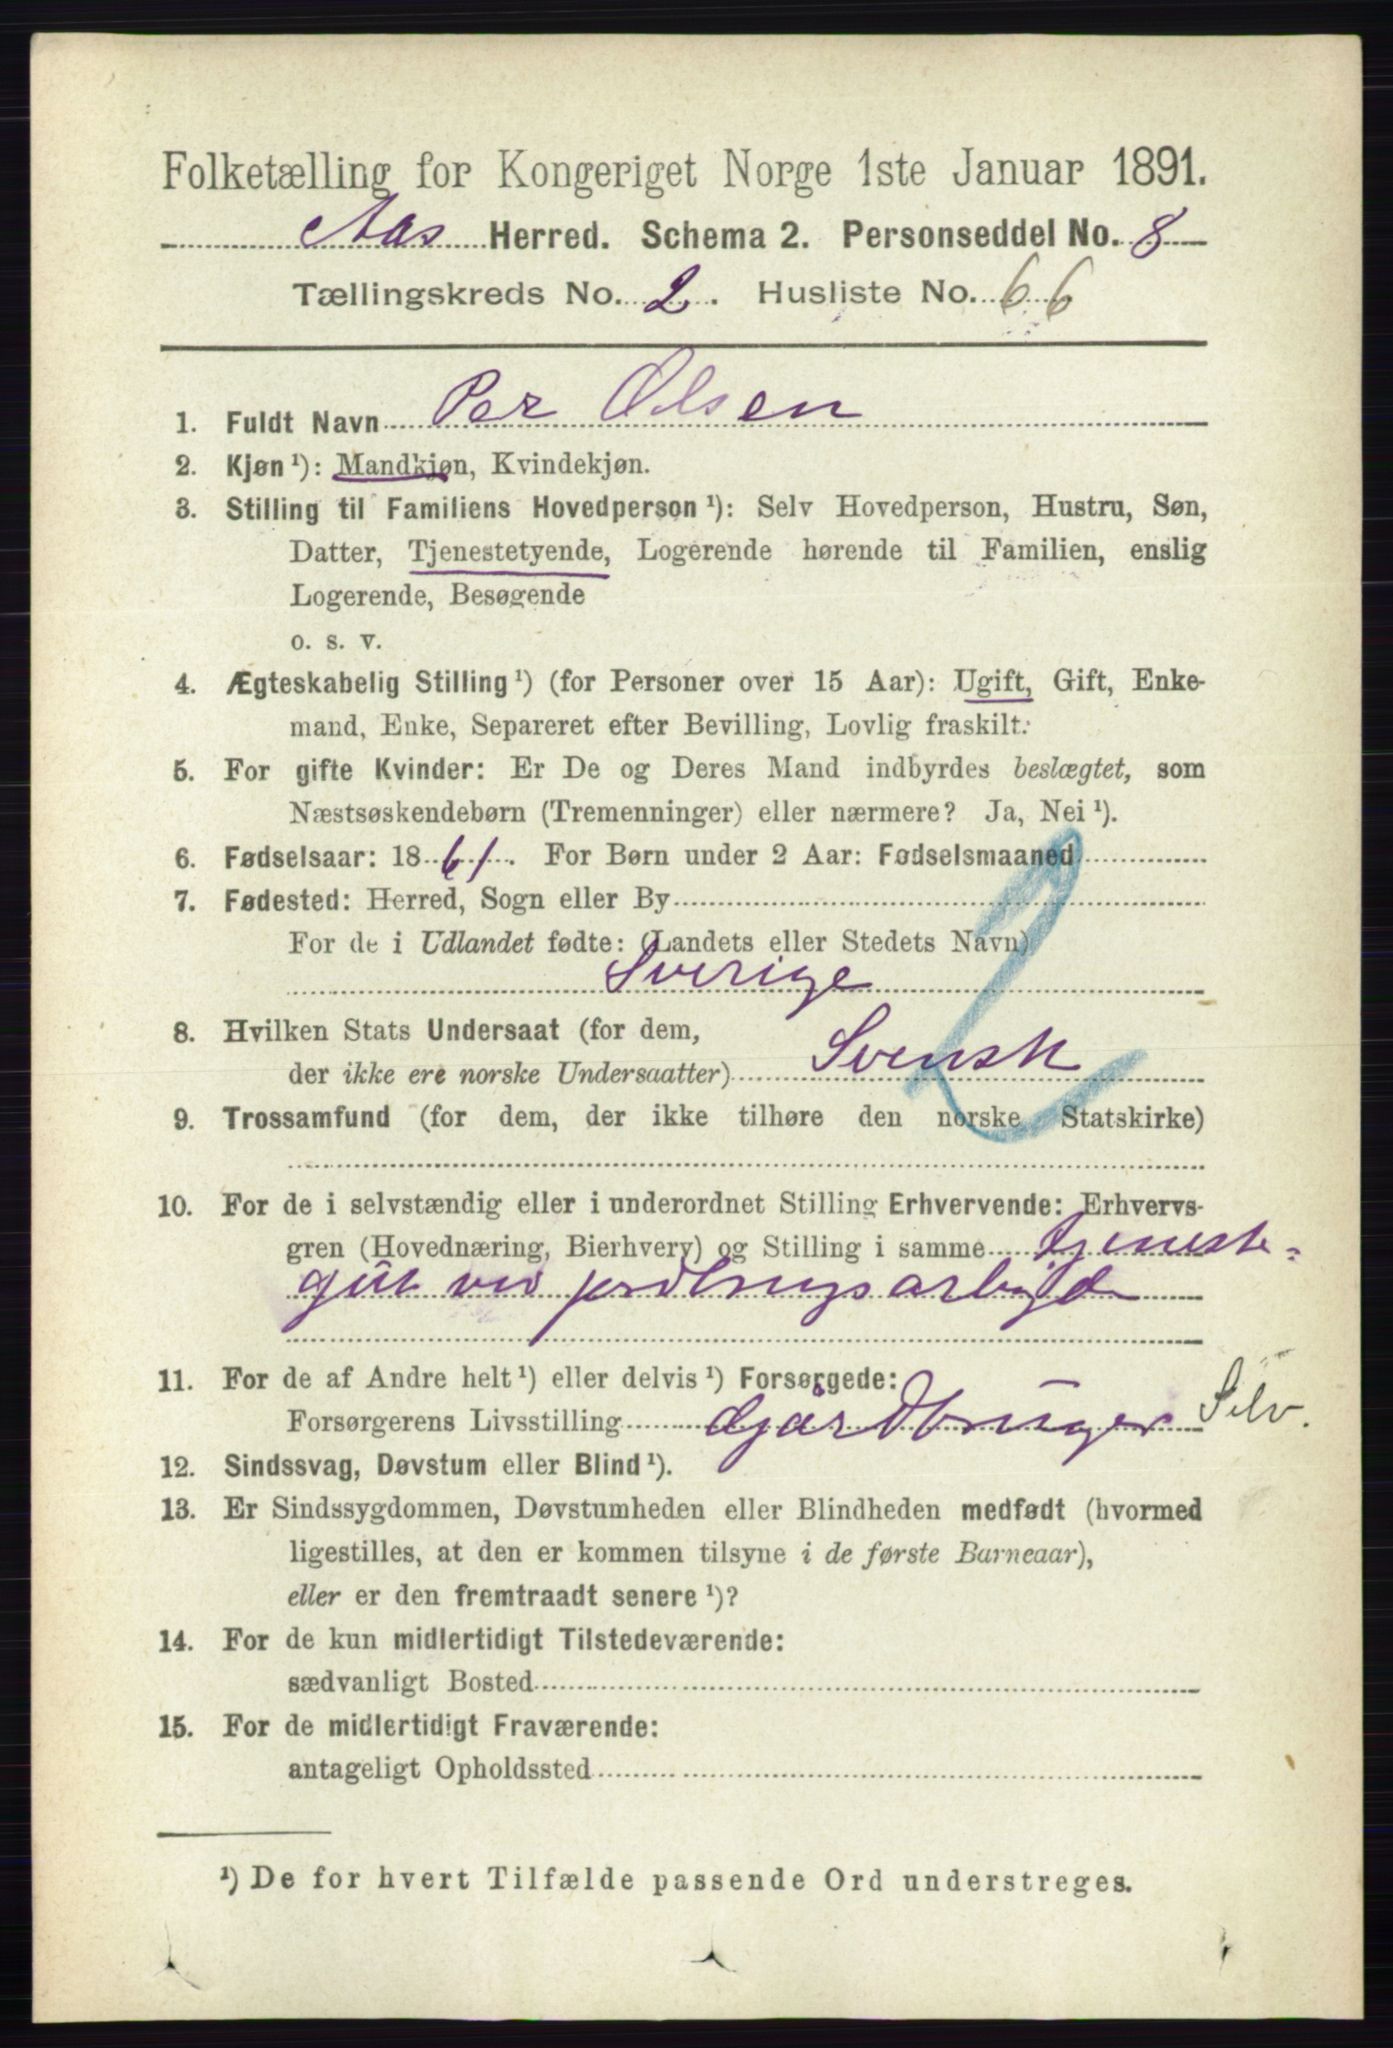 Folketælling for Kongeriget Norge 1ste Januar 1891.
Aas Herred. Schema 2. Personseddel No. 8
Tællingskreds No. 2. Husliste No. 66
1. Fuldt Navn Per Olsen
2. Kjøn¹): Mandkjøn, Kvindekjøn.
3. Stilling til Familiens Hovedperson¹): Selv Hovedperson, Hustru, Søn,
Datter, Tjenestetyende, Logerende hørende til Familien, enslig
Logerende, Besøgende
o. s. v.
4. Ægteskabelig Stilling¹) (for Personer over 15 Aar): Ugift, Gift, Enke-
mand, Enke, Separeret efter Bevilling, Lovlig fraskilt.
5. For gifte Kvinder: Er De og Deres Mand indbyrdes beslægtet, som
Næstsøskendebørn (Tremenninger) eller nærmere? Ja, Nei¹).
6. Fødselsaar: 1861. For Børn under 2 Aar: Fødselsmaaned
7. Fødested: Herred, Sogn eller By
For de i Udlandet fødte: (Landets eller Stedets Navn)
Sverige
2
8. Hvilken Stats Undersaat (for dem,
der ikke ere norske Undersaatter) Svensk
9. Trossamfund (for dem, der ikke tilhøre den norske Statskirke)
10. For de i selvstændig eller i underordnet Stilling Erhvervende: Erhvervs-
gren (Hovednæring, Bierhverv) og Stilling i samme tjeneste-
gut ved jordbrugsarbejde
11. For de af Andre helt¹) eller delvis¹) Forsørgede:
Forsørgerens Livsstilling Gjårdbruger Selv.
12. Sindssvag, Døvstum eller Blind¹).
13. Er Sindssygdommen, Døvstumheden eller Blindheden medfødt (hvormed
ligestilles, at den er kommen tilsyne i de første Barneaar),
eller er den fremtraadt senere¹)?
14. For de kun midlertidigt Tilstedeværende:
sædvanligt Bosted
15. For de midlertidigt Fraværende:
antageligt Opholdssted
¹) De for hvert Tilfælde passende Ord understreges.